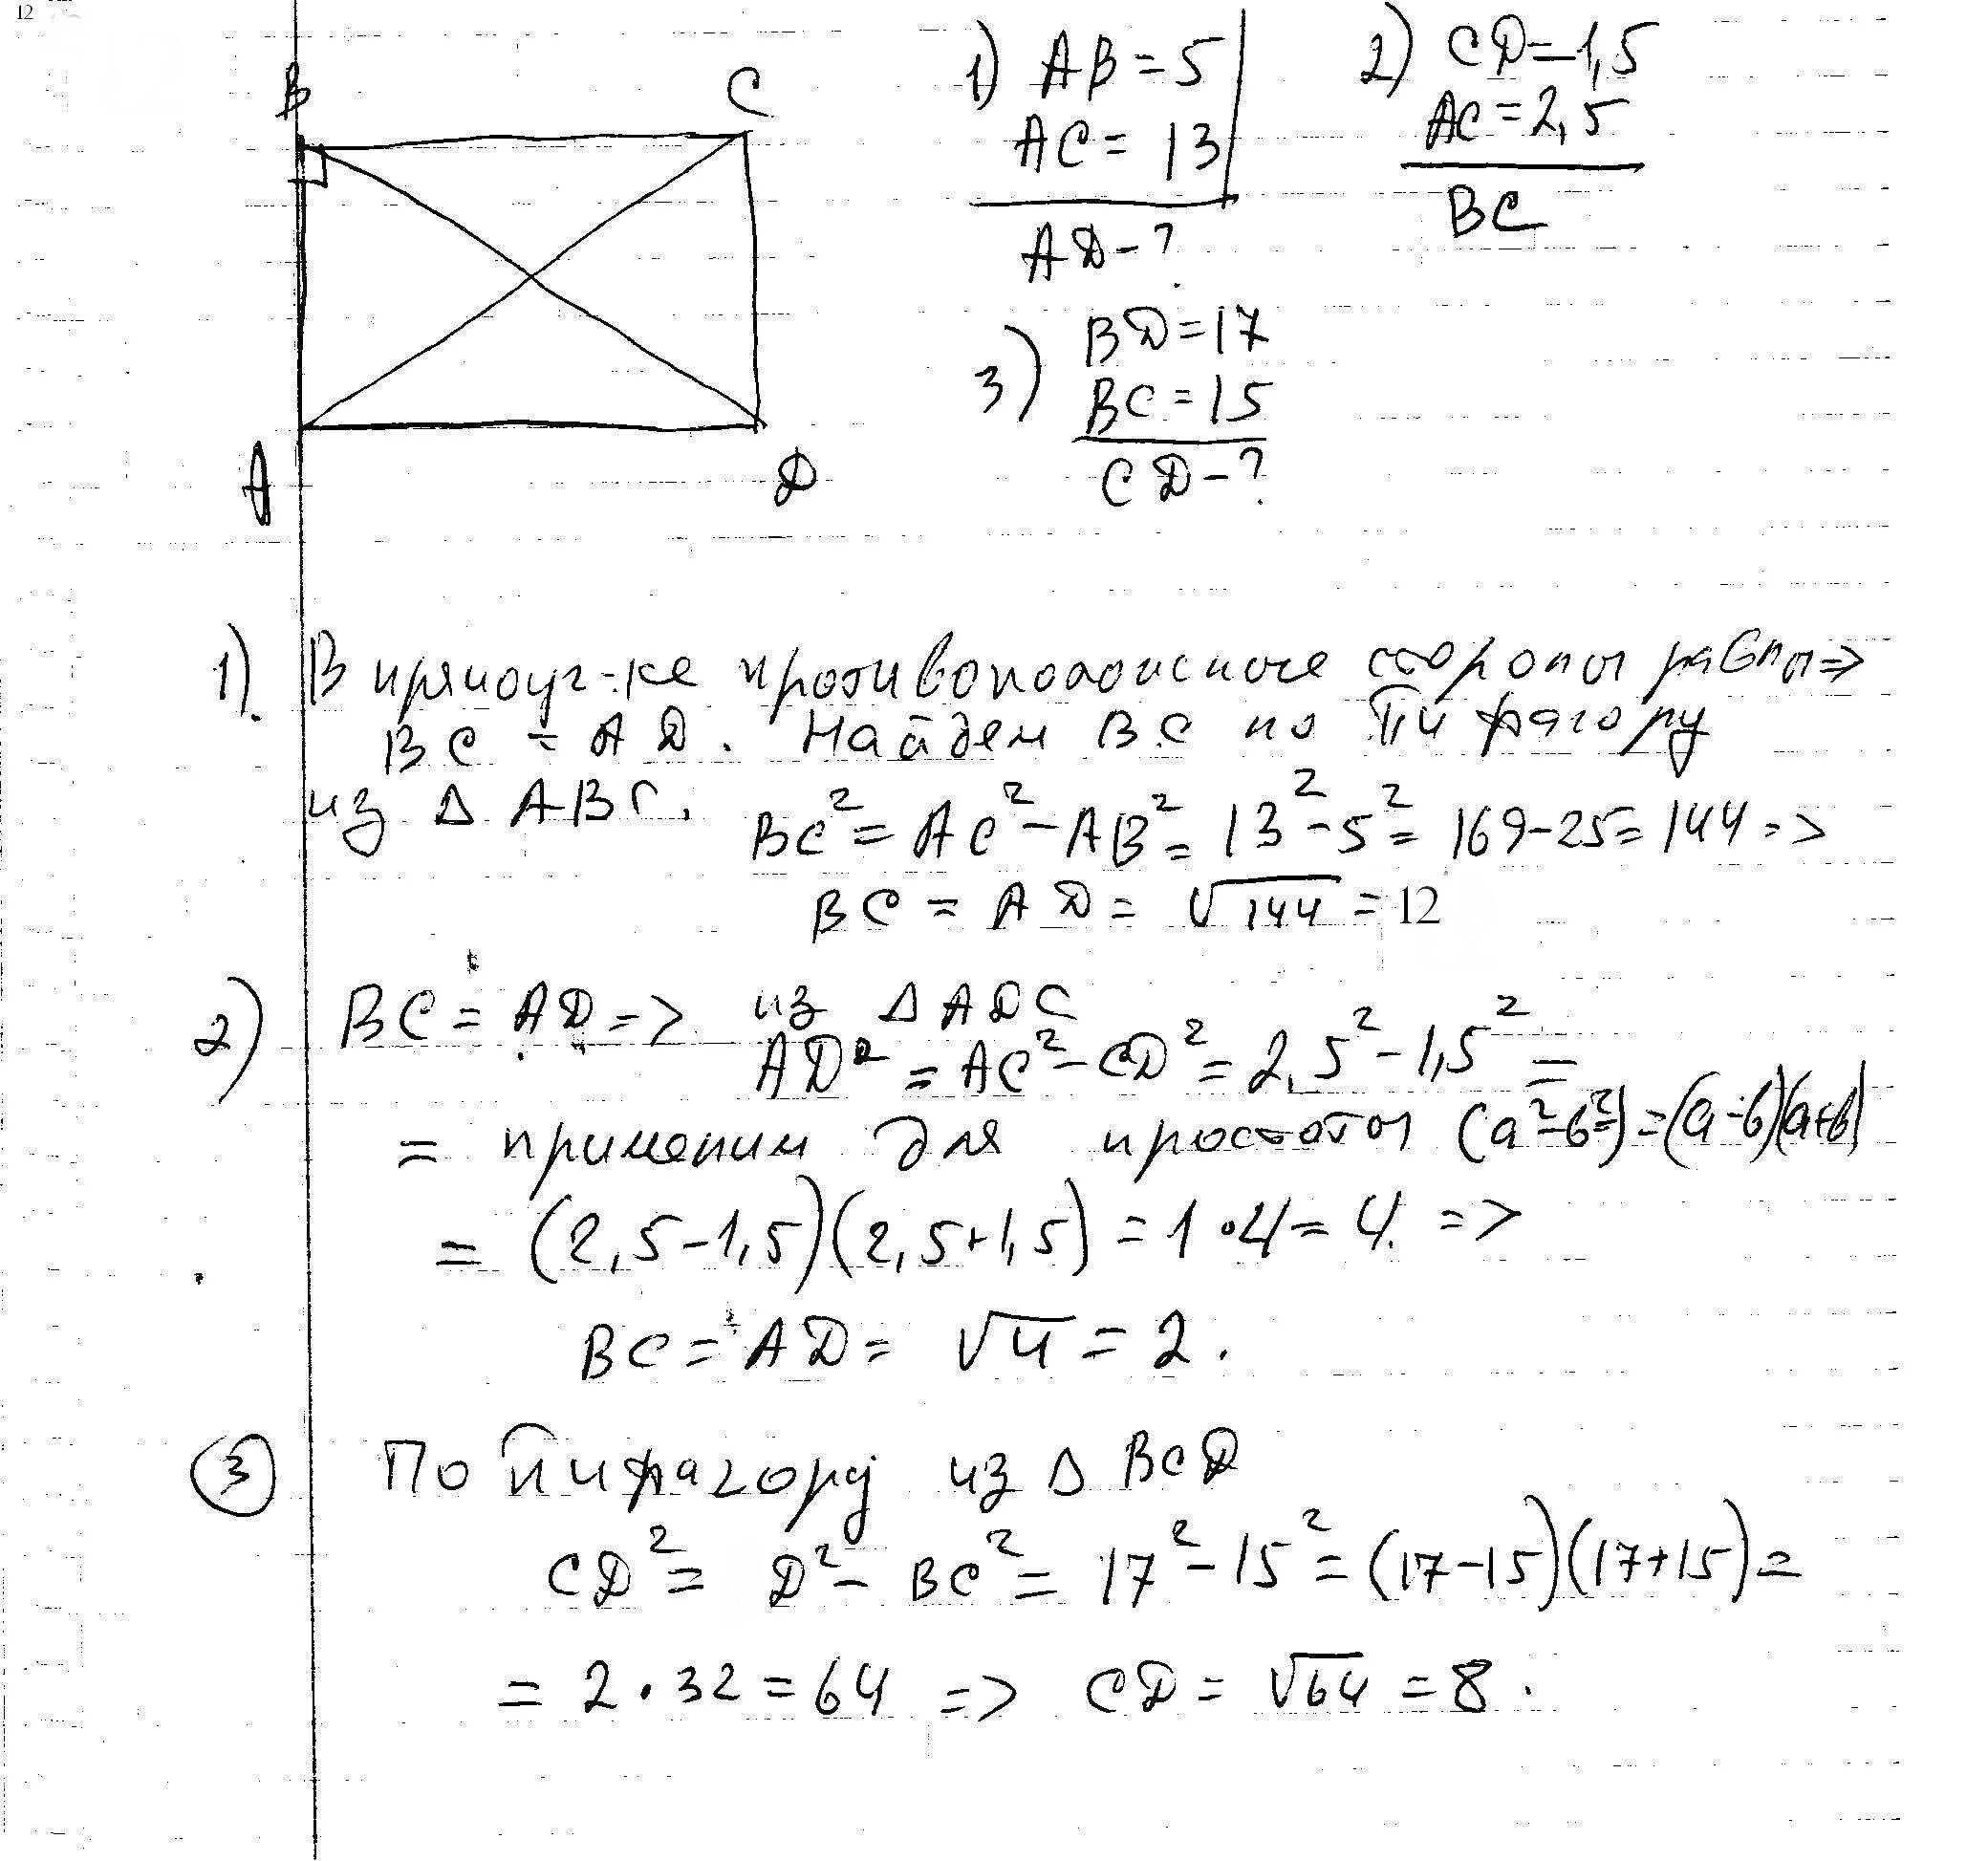 12
B
C
A
D
1) AB = 5
AC = 13
AD - ?
2) CD = 1,5
AC = 2,5
BC
3) BD = 17
BC = 15
CD - ?
1). В прямоуг-ке противоположные стороны равны =>
BC = AD. Найдем BC по Пифагору
из Δ ABC. BC² = AC² - AB² = 13² - 5² = 169 - 25 = 144 =>
BC = AD = √144 = 12
2) BC = AD => из Δ ADC
AD² = AC² - CD² = 2,5² - 1,5² =
= применим для простоты (a² - b²) = (a - b)(a + b)
= (2,5 - 1,5)(2,5 + 1,5) = 1 · 4 = 4. =>
BC = AD = √4 = 2.
3 По Пифагору из Δ BCD
CD² = D² - BC² = 17² - 15² = (17 - 15)(17 + 15) =
= 2 · 32 = 64 => CD = √64 = 8.